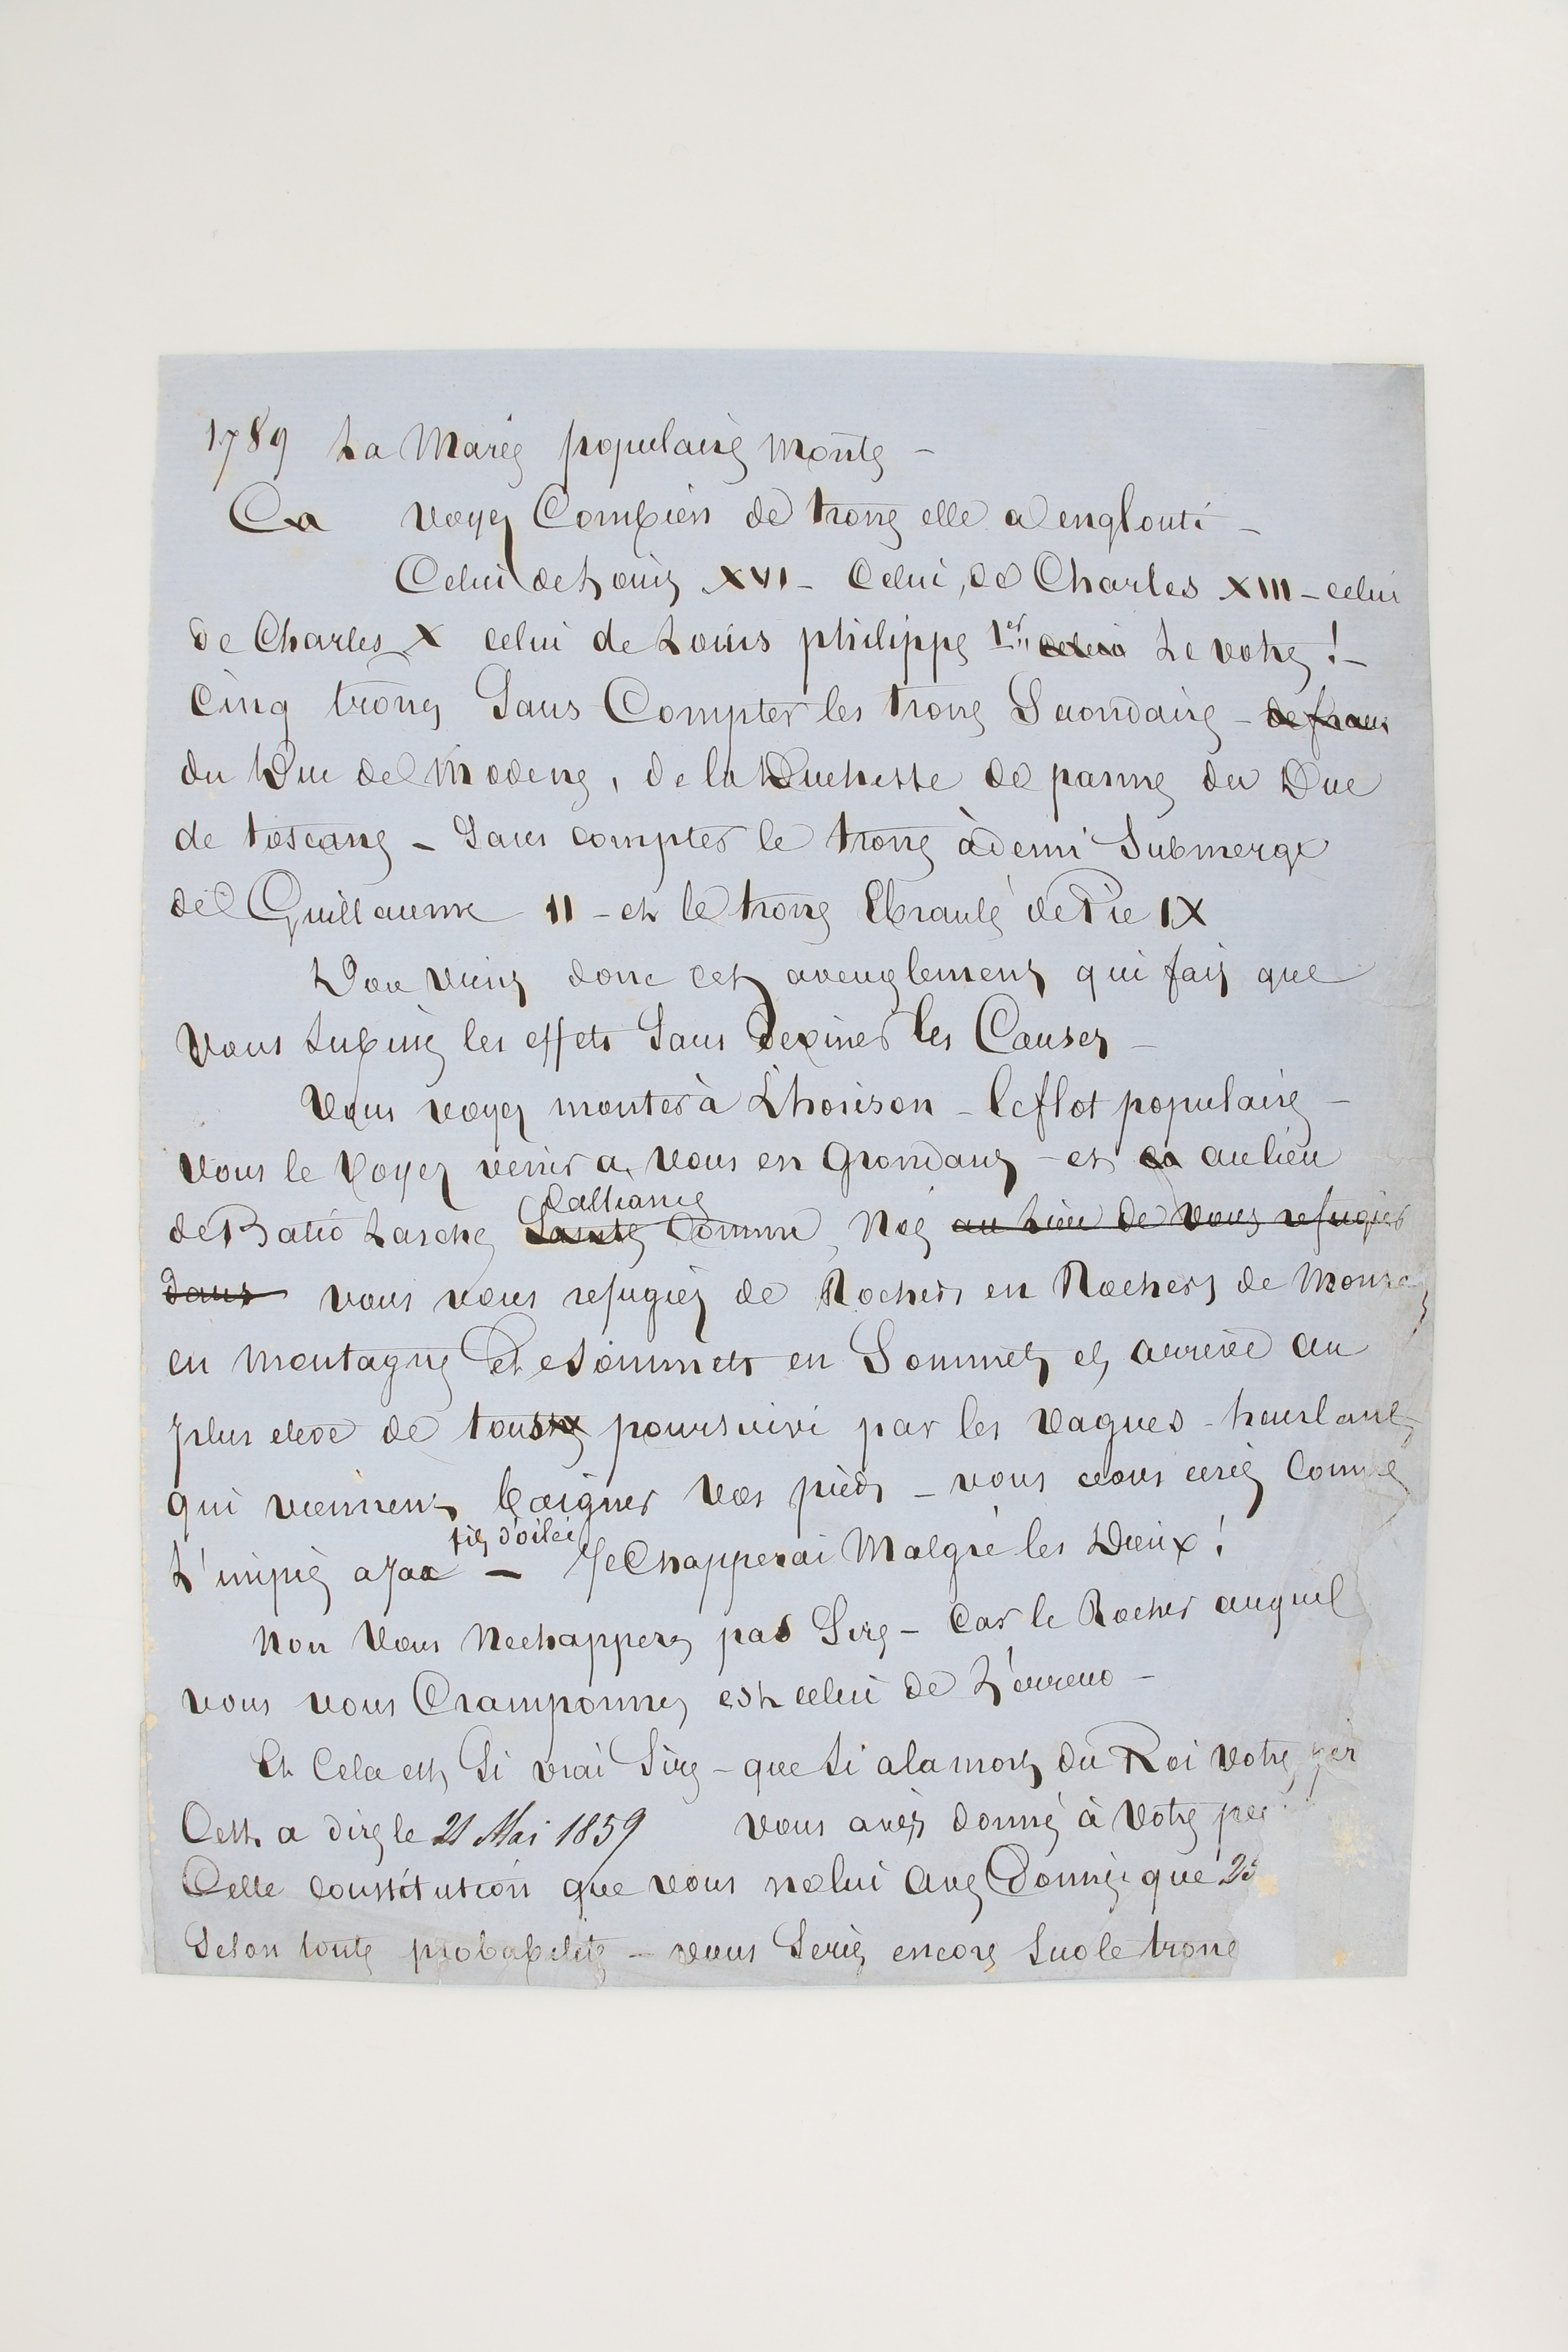 1789 La Marée populaire monte –
Ca voyez Combien de trone elle a englouti –
Celui de Louis XVI – Celui de Charles XIII – celui
de Charles X celui de Louis philippe 1er celui Le votre ! –
Cinq trones Sans Compter les trone Secondaire – de france
du Duc de Modene, de la Duchesse de parme du Duc
de toscane – Sans compter le trone à demi Submergé
de Guillaume II – et le trone Ebranlé de Pie IX
D'ou vient donc cet aveuglement qui fait que
Vous Subissez les effets Sans Deviner les Causes –
Vous voyez monter à L'horison – le flot populaire –
Vous le Voyez venir a Vous en Grondant – et au lieu
d'alliance
de Batir L'arche Sainte Comme Noé au Lieu de Vous refugier
dans vous vous refugiez de Rochers en Rochers de
en montagne et de Sommets en Sommets et arrivé au
plus elevé de tous poursuivi par les Vagues – hurlantes
qui viennent baigner Vos pieds – vous vous criez Comme
fils d'oilée
L'impie ajax – J'echapperai Malgré les Dieux !
Non Vous N'echapperez pas Sire – Car le Rocher auquel
vous vous Cramponnez est celui de L'erreur –
Et Cela est Si vrai Sire – que Si a la mort du Roi Votre per
C'est a dire le 21 Mai 1859 vous aviez donné à Votre peu
Cette constitution que vous ne lui avez Donnée que 25
Selon toute probabilité – vous Seriez encore Sur le trone